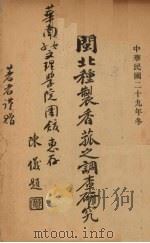 中華民國二十九年冬
閩北種製香菰之調查研究
陳儀題
華南女子文理學院圖館惠存
著者謹贈